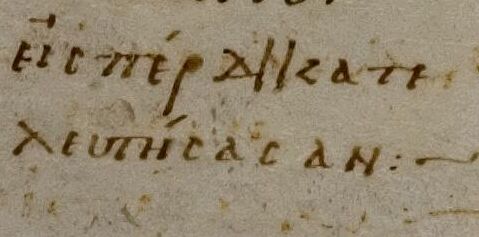 εἰς πέρδικα τε
λευτήσασαν:–